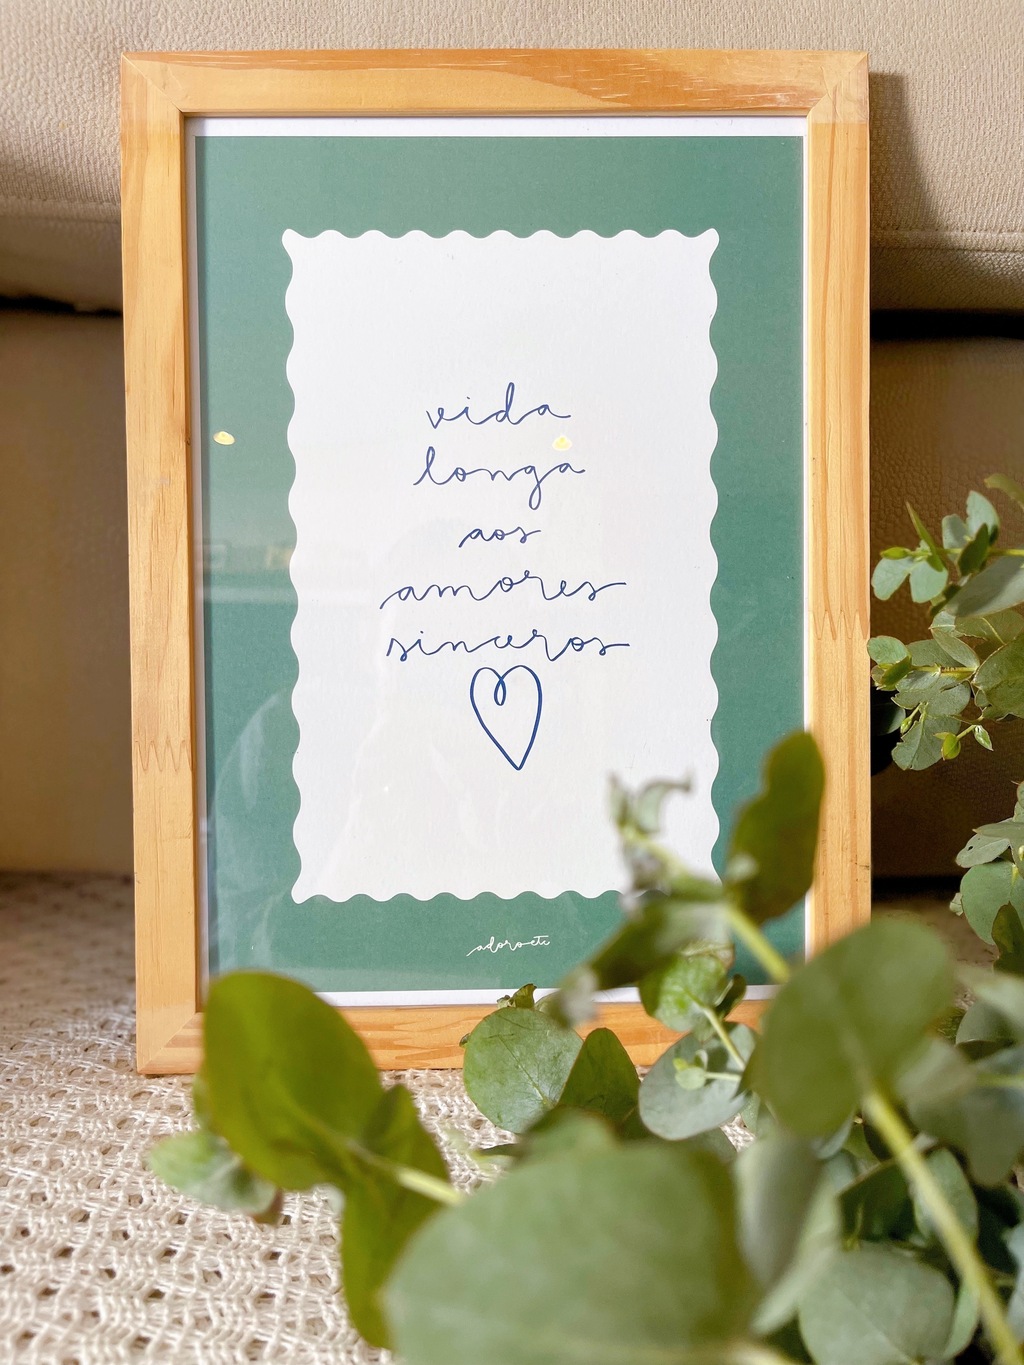 vida
longa
aos
amores
sinceros
adoroetc